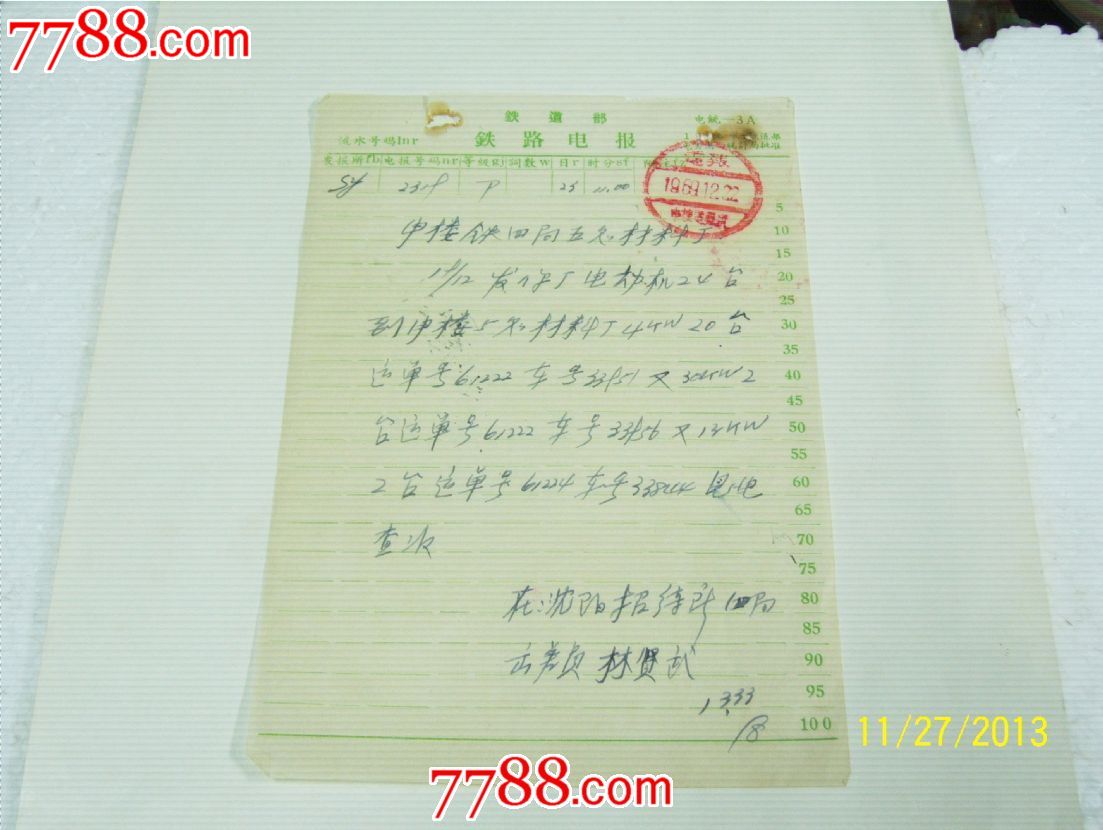 7788.com
鉄道部
电統—3A
流水号码lnr
鉄路电报
发报所fb 电报号码nr 等级RJ 詞数W 日r 时分sf
Sy 231f P 25 11.00
1969.12.22
5
铁四局五处材料厂
10
15
12发 厂电动机24台
20
25
到 楼5处材料厂4KW20台
30
35
运单号61222车号33151又 KW2
40
45
台运单号61222车号33156又13KW
50
55
2台运单号61224车号 电
60
65
查收
70
75
在沈阳招待所四局
80
85
出差员林贤武
90
1333
95
18
100
11/27/2013
7788.com